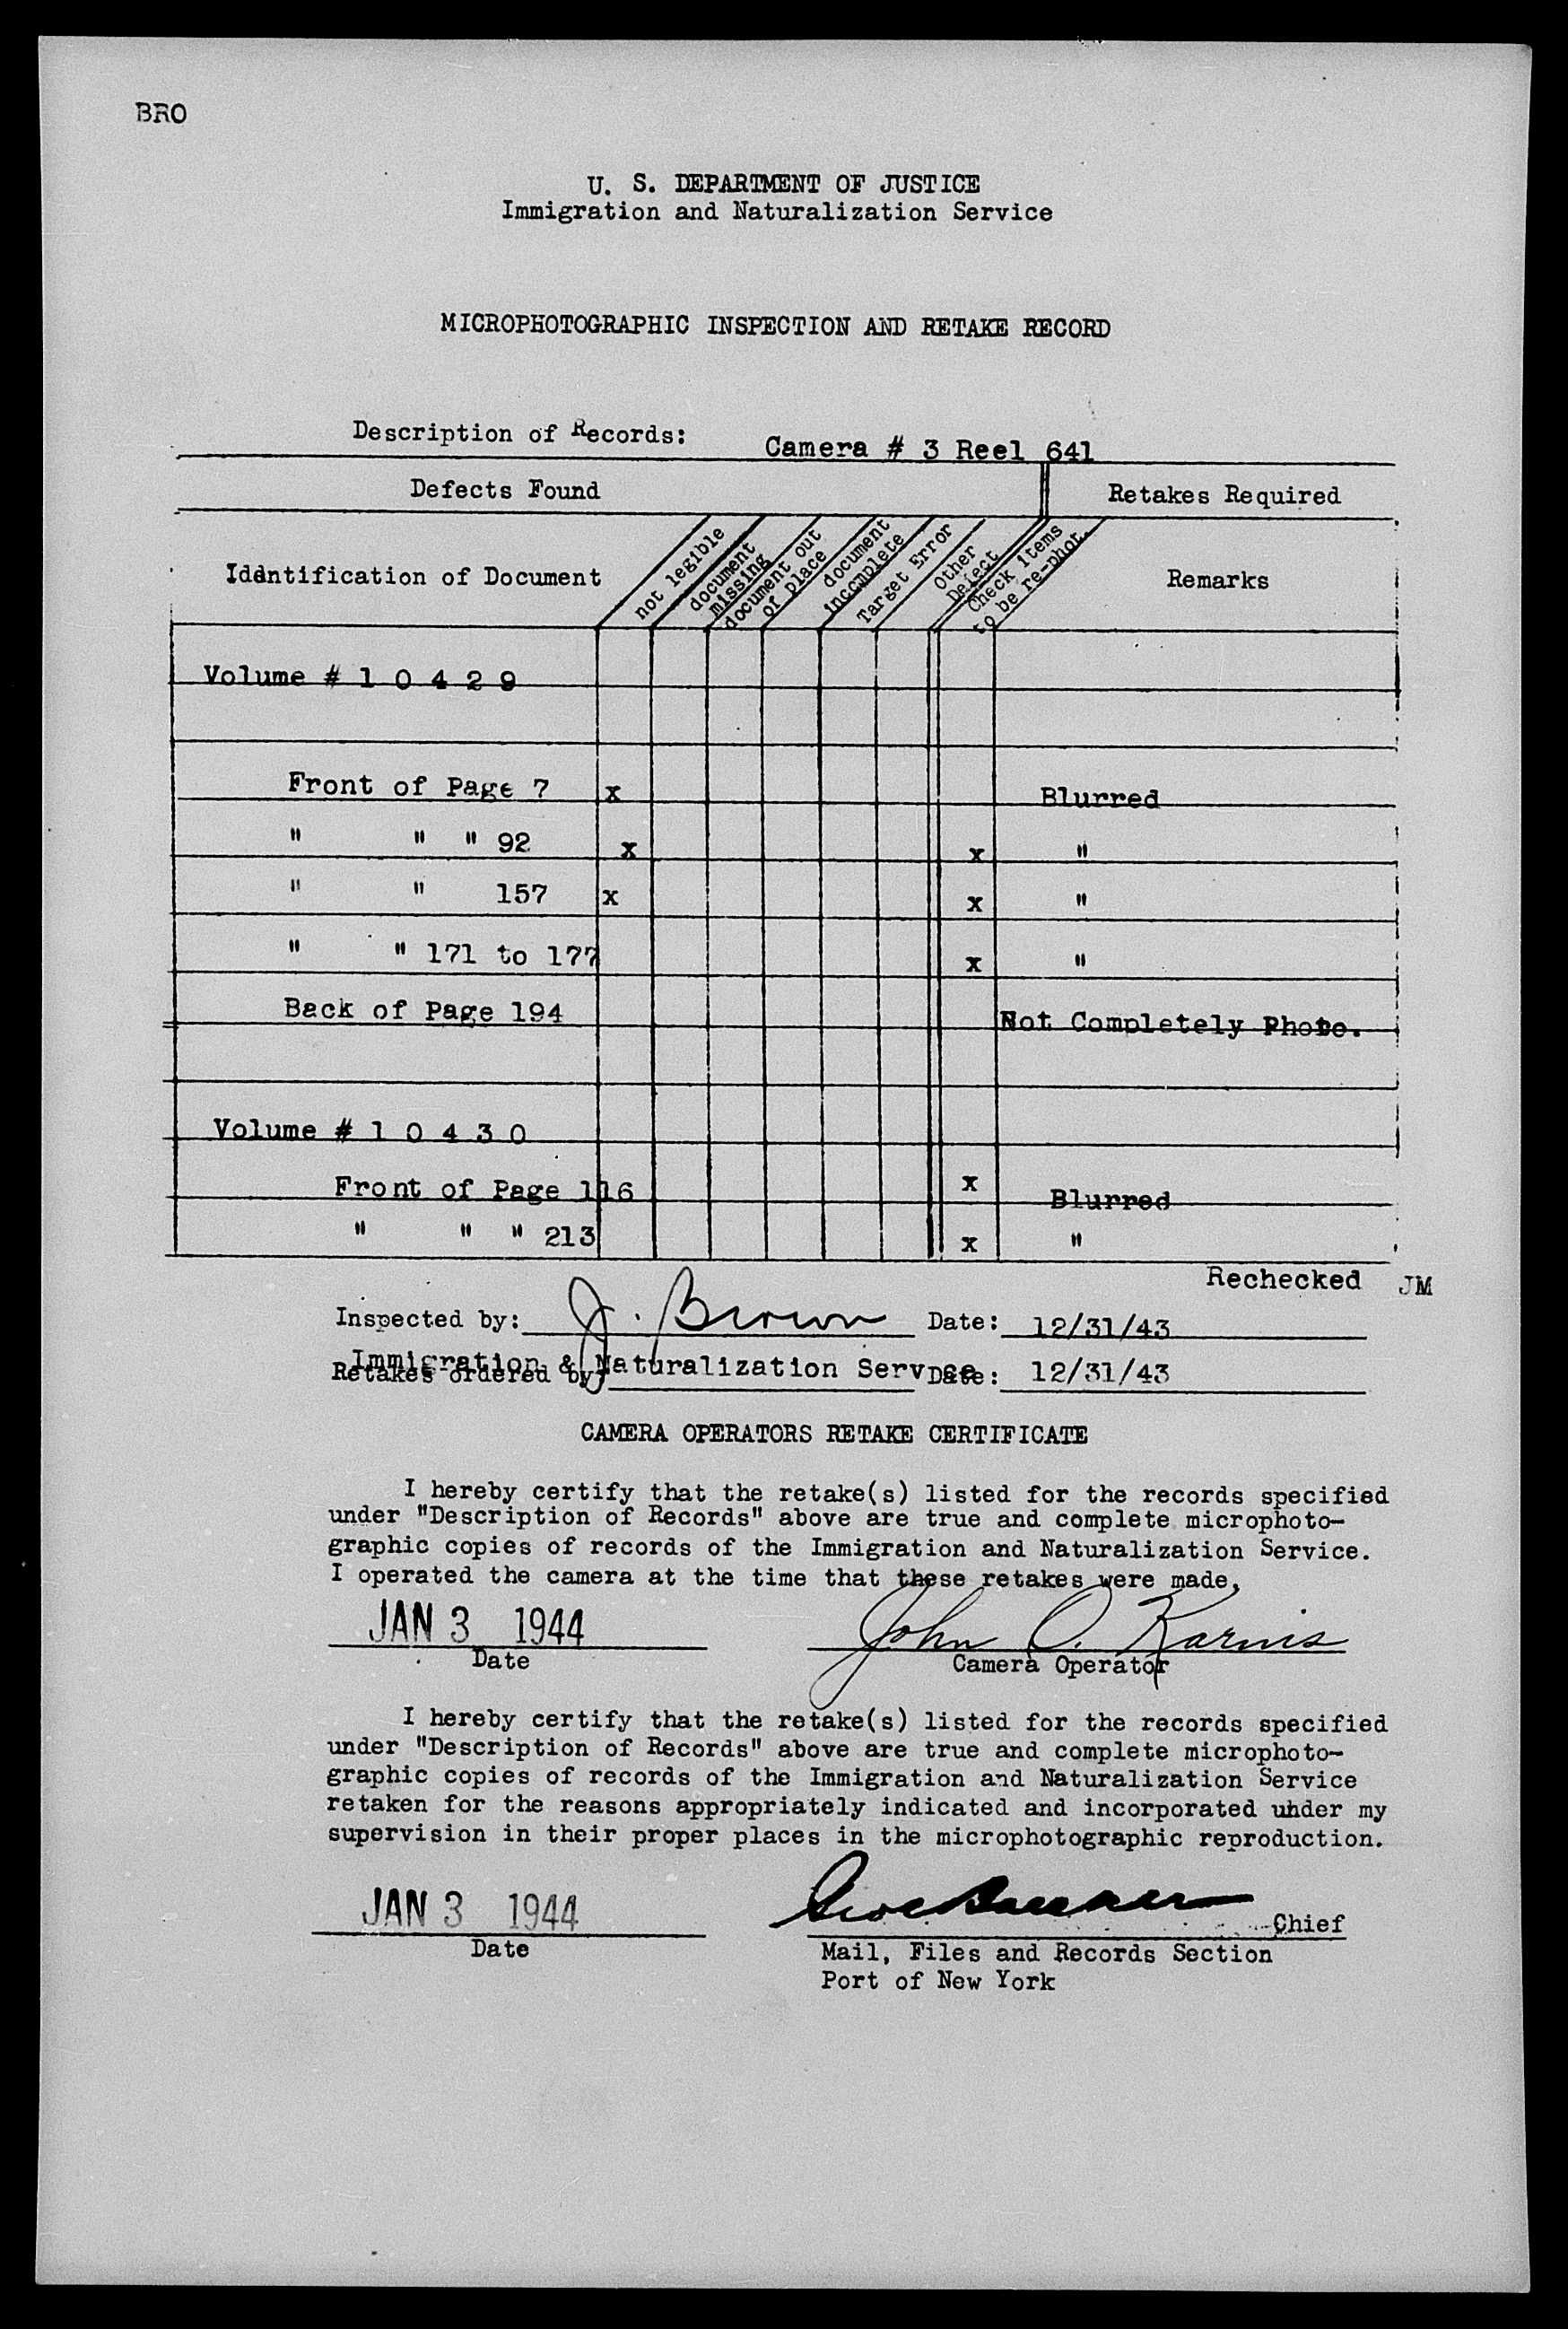 BRO
U. S. DEPARTMENT OF JUSTICE
Immigration and Naturalization Service
MICROPHOTOGRAPHIC INSPECTION AND RETAKE RECORD
Description of Records: Camera # 3 Reel 641
Defects Found Retakes Required
Idantification of Document not legible document missing document out of place document incomplete Target Error Other Defect Check items to be re-phot. Remarks
Volume # 1 0 4 2 9
Front of Page 7 x Blurred
" " " 92 x x "
" " 157 x x "
" " 171 to 177 x "
Back of Page 194 Not Completely Photo.
Volume # 1 0 4 3 0
Front of Page 116 x Blurred
" " " 213 x "
Rechecked JM
Inspected by: J. Brown Date: 12/31/43
Immigration & Naturalization Serv
Retakes ordered by Date: 12/31/43
CAMERA OPERATORS RETAKE CERTIFICATE
I hereby certify that the retake(s) listed for the records specified
under "Description of Records" above are true and complete microphoto-
graphic copies of records of the Immigration and Naturalization Service.
I operated the camera at the time that these retakes were made,
JAN 3 1944 John O. Karnis
Date Camera Operator
I hereby certify that the retake(s) listed for the records specified
under "Description of Records" above are true and complete microphoto-
graphic copies of records of the Immigration and Naturalization Service
retaken for the reasons appropriately indicated and incorporated uhder my
supervision in their proper places in the microphotographic reproduction.
JAN 3 1944 Chief
Date Mail, Files and Records Section
Port of New York